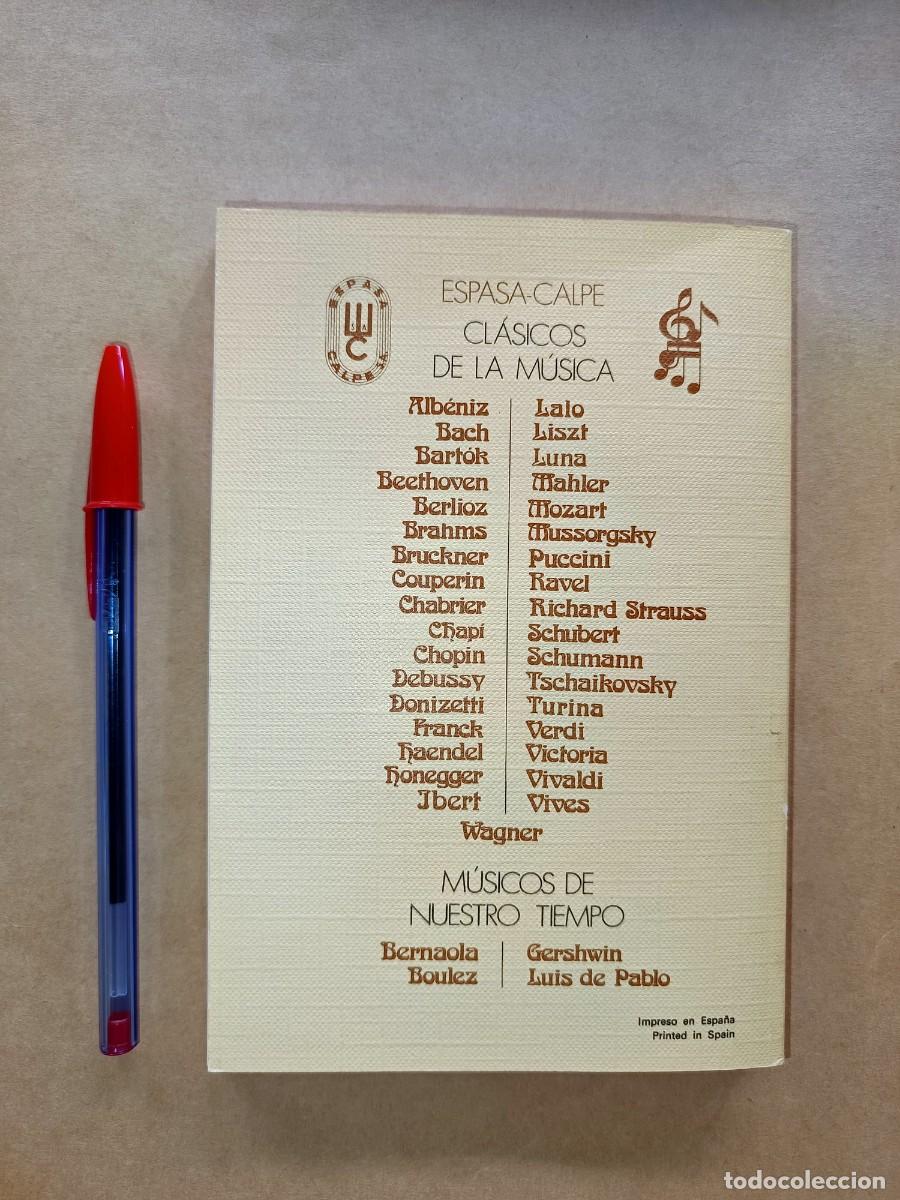 ESPASA
CALPE S.A.
ESPASA-CALPE
CLÁSICOS
DE LA MÚSICA
Albéniz
Bach
Bartók
Beethoven
Berlioz
Brahms
Bruckner
Couperin
Chabrier
Chapí
Chopin
Debussy
Donizetti
Franck
Haendel
Honegger
Ibert
Lalo
Liszt
Luna
Mahler
Mozart
Mussorgsky
Puccini
Ravel
Richard Strauss
Schubert
Schumann
Tschaikovsky
Turina
Verdi
Victoria
Vivaldi
Vives
Wagner
MÚSICOS DE
NUESTRO TIEMPO
Bernaola
Boulez
Gershwin
Luis de Pablo
Impreso en España
Printed in Spain
todocoleccion